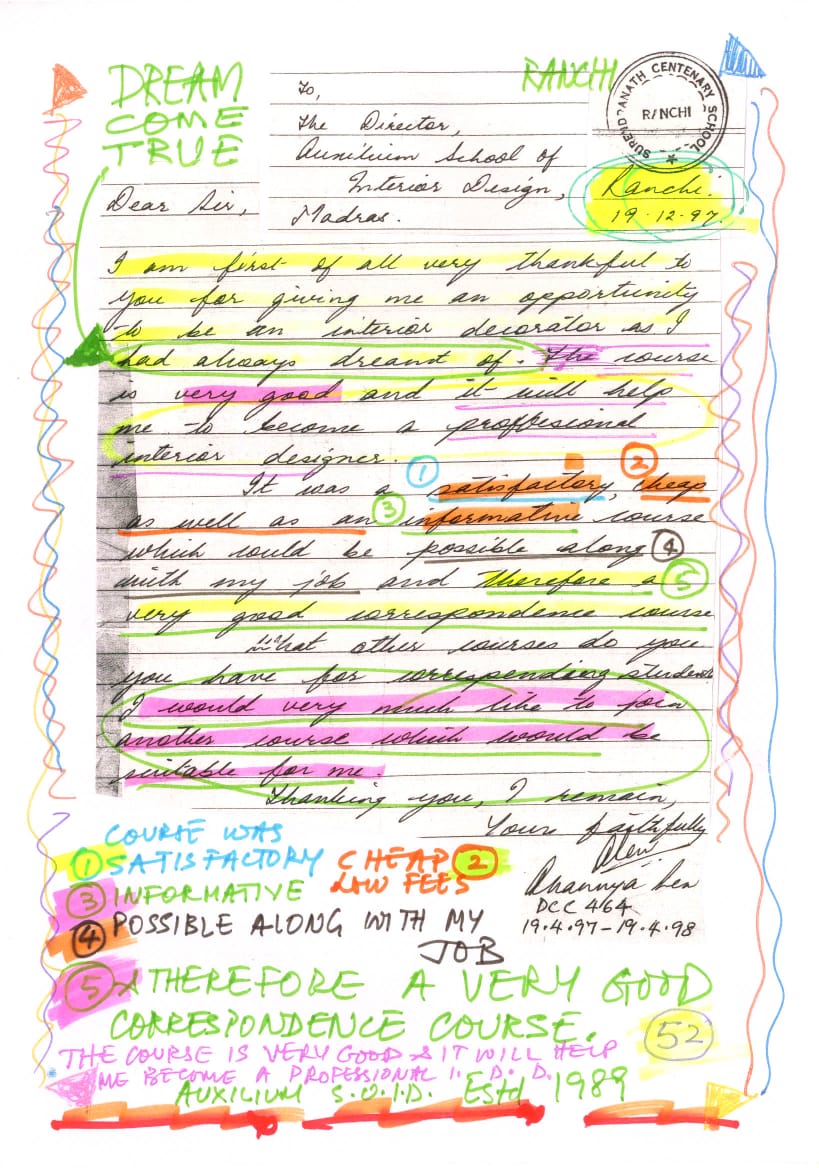 DREAM
COME
TRUE
RANCHI
SURENDRANATH CENTENARY SCHOOL
RANCHI
To,
The Director,
Auxilium School of
Interior Design,
Madras.
Ranchi.
19.12.97.
Dear Sir,
I am first of all very thankful to
you for giving me an opportunity
to be an interior decorator as I
had always dreamt of. The course
is very good and it will help
me to become a proffesional
interior designer.
It was a ① satisfactory, ② cheap
as well as an ③ informative course
which could be possible along ④
with my job and therefore a ⑤
very good correspondence course
What other courses do you
you have for corresponding students
I would very much like to join
another course which would be
suitable for me.
Thanking you, I remain,
Yours faithfully
DCC 464
19.4.97-19.4.98
COURSE WAS
① SATISFACTORY CHEAP ②
LOW FEES
③ INFORMATIVE
④ POSSIBLE ALONG WITH MY
JOB
⑤ & THEREFORE A VERY GOOD
CORRESPONDENCE COURSE.
52
THE COURSE IS VERY GOOD & IT WILL HELP
ME BECOME A PROFESSIONAL I. D. D.
AUXILIUM S.O.I.D. Estd 1989